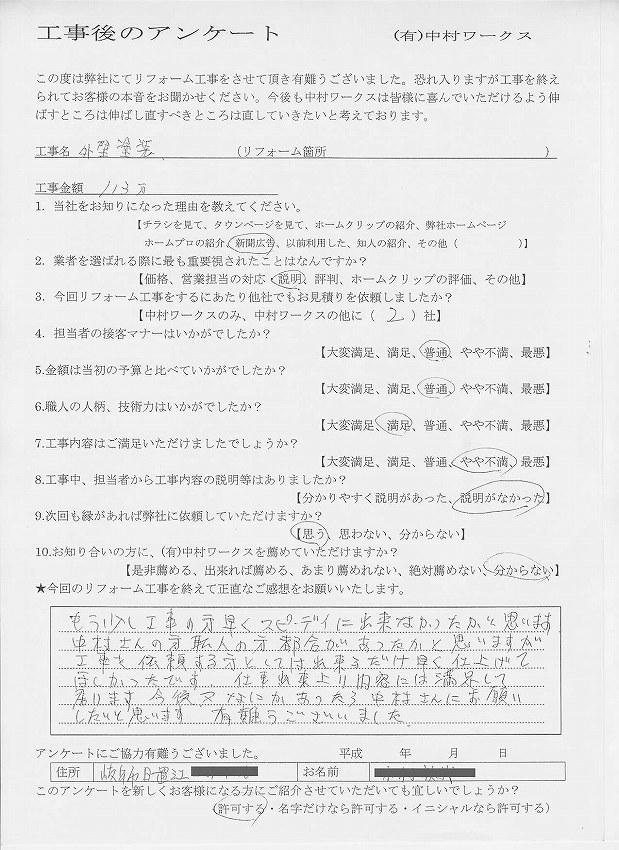 工事後のアンケート (有)中村ワークス
この度は弊社にてリフォーム工事をさせて頂き有難うございました。恐れ入りますが工事を終え
られてお客様の本音をお聞かせください。今後も中村ワークスは皆様に喜んでいただけるよう伸
ばすところは伸ばし直すべきところは直していきたいと考えております。
工事名 外壁塗装 (リフォーム箇所 )
工事金額 113万
1. 当社をお知りになった理由を教えてください。
【チラシを見て、タウンページを見て、ホームクリップの紹介、弊社ホームページ
ホームプロの紹介、新聞広告、以前利用した、知人の紹介、その他( )】
2. 業者を選ばれる際に最も重要視されたことはなんですか?
【価格、営業担当の対応・説明、評判、ホームクリップの評価、その他】
3. 今回リフォーム工事をするにあたり他社でもお見積りを依頼しましたか?
【中村ワークスのみ、中村ワークスの他に( 2 )社】
4. 担当者の接客マナーはいかがでしたか?
【大変満足、満足、普通、やや不満、最悪】
5.金額は当初の予算と比べていかがでしたか?
【大変満足、満足、普通、やや不満、最悪】
6.職人の人柄、技術力はいかがでしたか?
【大変満足、満足、普通、やや不満、最悪】
7.工事内容はご満足いただけましたでしょうか?
【大変満足、満足、普通、やや不満、最悪】
8.工事中、担当者から工事内容の説明等はありましたか?
【分かりやすく説明があった、説明がなかった】
9.次回も縁があれば弊社に依頼していただけますか?
【思う、思わない、分からない】
10.お知り合いの方に、(有)中村ワークスを薦めていただけますか?
【是非薦める、出来れば薦める、あまり薦めれない、絶対薦めない、分からない】
★今回のリフォーム工事を終えて正直なご感想をお願いいたします。
もう少し工事の方早くスピーディイに出来なかったかと思います
中村さんの方職人の方都合があったかと思いますが
工事を依頼する方としては出来るだけ早く仕上げて
ほしかったです。仕事出来上り内容には満足して
居ります 今後又なにかあったら中村さんにお願い
したいと思います 有難うございました
アンケートにご協力有難うございました。 平成 年 月 日
住所 岐阜市日置江 お名前
このアンケートを新しくお客様になる方にご紹介させていただいても宜しいでしょうか?
(許可する・名字だけなら許可する・イニシャルなら許可する)